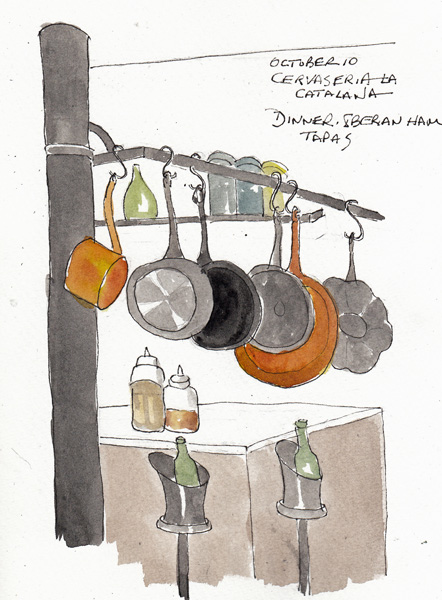 OCTOBER 10
CERVASERIA LA
CATALANA
DINNER. IBERIAN HAM
TAPAS